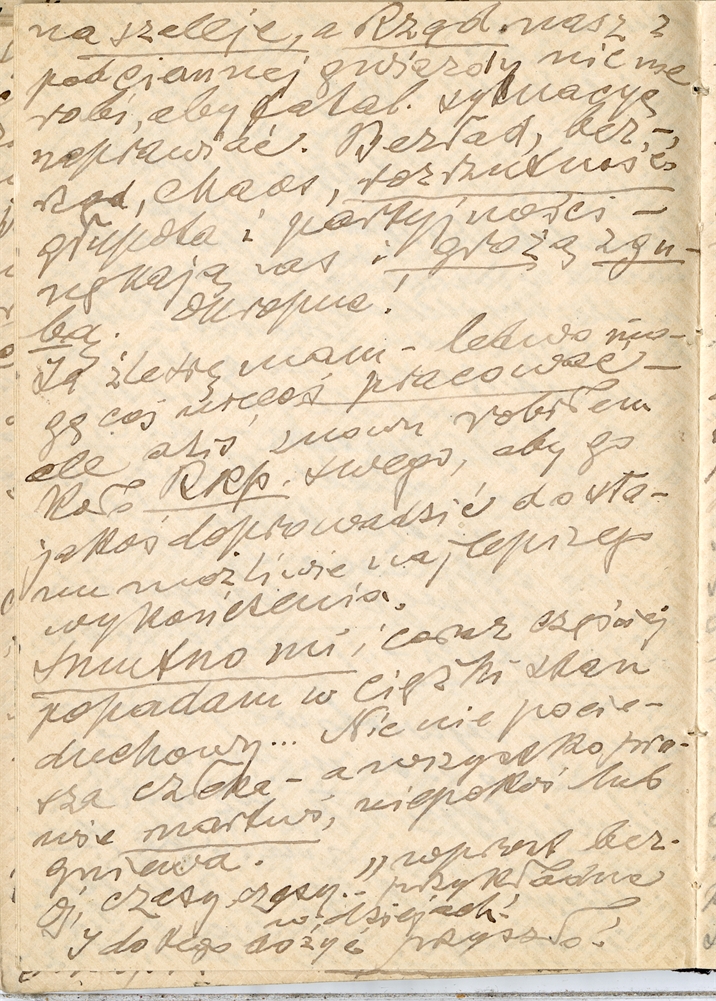 na szelkje, a Rząd nasz z
pod ciemnej gwiazdy nic nie
robi, aby fatal. sytuacyę
naprawiać. Bezład, bez-
rząd, chaos, rozrzutność
głupota i partyjności –
nękają nas i grożą zgu-
bą. Okropne!
Ja źle się mam – ledwo mo-
gę coś niecoś pracować –
ale dziś znowu robiłem
koło Rkp. swego, aby go
jakoś doprowadzić do sta-
nu możliwie najlepszego
wykończenia.
Smutno mi i coraz częściej
popadam w ciężki stan
duchowy... Nic nie pocie-
sza człeka – a wszystko pra-
wie martwi, niepokoi lub
gniewa.
Oj, czasy czasy... „wprost bez-
przykładne
w dziejach"
I do tego dożyć przyszło!